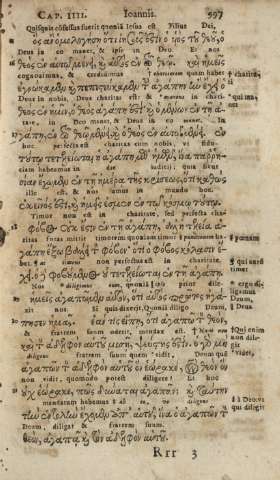 CAP. IIII. Ioannis. 997
Quisquis cōfessus fuerit quoniā Iesus est Filius Dei,
ὃς ἂν ὁμολογήσῃ ὅτι ἰησοῦς ἐστὶν ὁ υἱὸς τοῦ θεοῦ ὁ
Deus in eo manet, & ipse in Deo. Et nos
θεὸς ἐν αὐτῷ μένει, καὶ αὐτὸς ἐν τῷ θεῷ. καὶ ἡμεῖς
cognouimus, & credidimus quam habet † charitati,
ἐγνώκαμεν καὶ πεπιστεύκαμεν τὴν ἀγάπην ἣν ἔχει ὁ
Deus in nobis. Deus charitas est: & manet in chari
θεὸς ἐν ἡμῖν, ὁ θεὸς ἀγάπη ἐστὶ, καὶ ὁ μένων ἐν τῇ ἀ-
tate, in Deo manet, & Deus in eo manet. In
γάπῃ, ἐν τῷ θεῷ μένει, καὶ ὁ θεὸς ἐν αὐτῷ μένει. ἐν
hoc perfecta est charitas nobis, vt fidu-
τούτῳ τετελείωται ἡ ἀγάπη μεθ' ἡμῶν, ἵνα παρρη-
ciam habeamus in die iudicii: quia sicut
σίαν ἔχωμεν ἐν τῇ ἡμέρᾳ τῆς κρίσεως, ὅτι καθὼς
ille est, & nos sumus in mundo hoc.
ἐκεῖνός ἐστι, καὶ ἡμεῖς ἐσμὲν ἐν τῷ κόσμῳ τούτῳ.
Timor non est in charitate, sed perfecta cha-
φόβος οὐκ ἔστιν ἐν τῇ ἀγάπῃ, ἀλλ' ἡ τελεία ἀ-
ritas foras mittit timorem: quoniam timor
γάπη ἔξω βάλλει τὸν φόβον· ὅτι ὁ φόβος κόλασιν ἔ-
non perfectus est in charitate. ¶ qui autē timet
χει. ὁ φοβούμενος οὐ τετελείωται ἐν τῇ ἀγάπῃ.
Nos quoniā prior dile-
ἡμεῖς ἀγαπῶμεν αὐτὸν, ὅτι αὐτὸς πρῶτος ἠγά-
xit nos. Si quis dixerit, Quoniā diligo Deum,
πησεν ἡμᾶς. ἐάν τις εἴπῃ, ὅτι ἀγαπῶ τὸν θεὸν,
& fratrem suum oderit, mendax est.
καὶ τὸν ἀδελφὸν αὐτοῦ μισῇ, ψεύστης ἐστίν. ὁ γὰρ μὴ
diligens fratrem suum quem vidit, Deum quē
ἀγαπῶν τὸν ἀδελφὸν αὐτοῦ ὃν ἑώρακε, τὸν θεὸν ὃν
non vidit, quomodo potest diligere? Et hoc
οὐχ ἑώρακε, πῶς δύναται ἀγαπᾶν; καὶ ταύτην
mandatum habemus vt qui diligit
τὴν ἐντολὴν ἔχομεν ἀπ' αὐτοῦ, ἵνα ὁ ἀγαπῶν τὸν
Deum, diligat & fratrem suum.
θεὸν, ἀγαπᾷ καὶ τὸν ἀδελφὸν αὐτοῦ.
Rrr 3